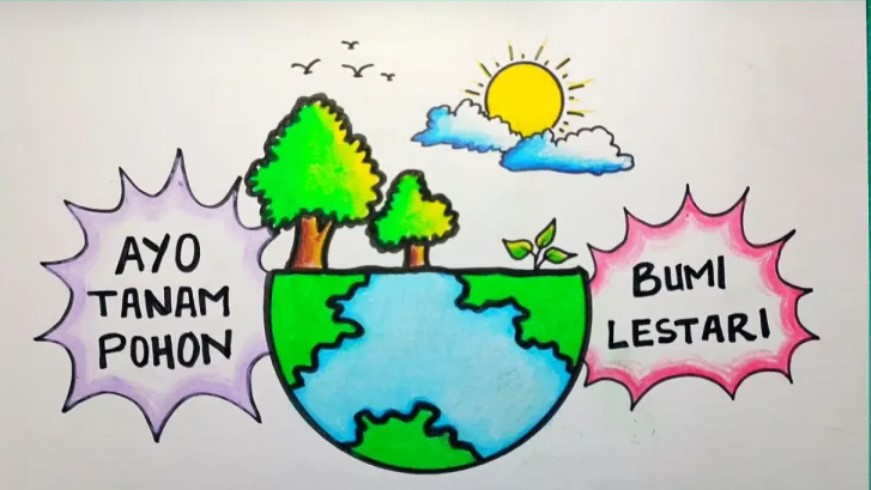 AYO
TANAM
POHON
BUMI
LESTARI